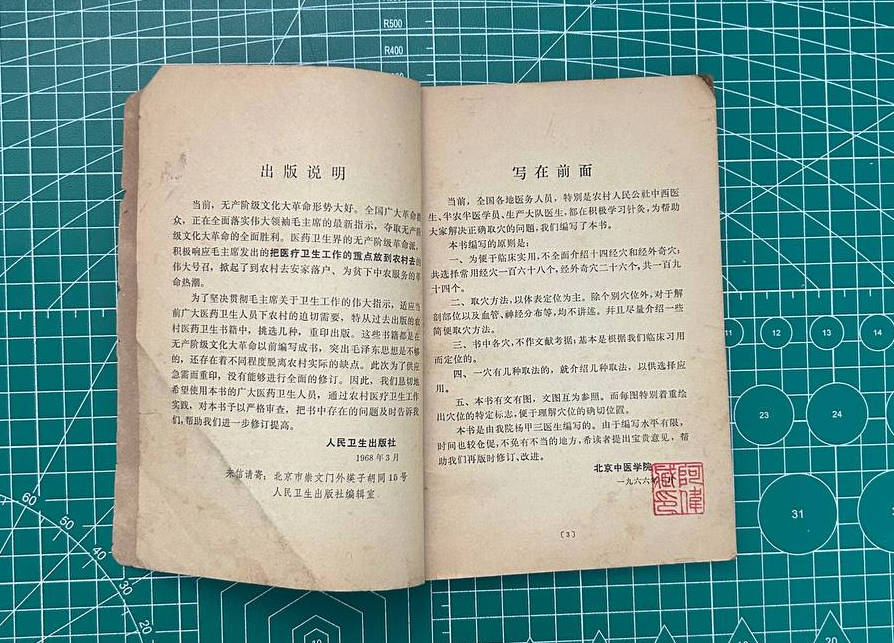 R500
R400
出版说明
当前，无产阶级文化大革命形势大好。全国广大革命群
众，正在全面落实伟大领袖毛主席的最新指示，夺取无产阶
级文化大革命的全面胜利。医药卫生界的无产阶级革命派，
积极响应毛主席发出的把医疗卫生工作的重点放到农村去的
伟大号召，掀起了到农村去安家落户、为贫下中农服务的革
命热潮。
为了坚决贯彻毛主席关于卫生工作的伟大指示，适应当
前广大医药卫生人员下农村的迫切需要，特从过去出版的农
村医药卫生书籍中，挑选几种，重印出版。这些书籍都是在
无产阶级文化大革命以前编写成书，突出毛泽东思想是不够
的，还存在着不同程度脱离农村实际的缺点。此次为了供应
急需而重印，没有能够进行全面的修订。因此，我们恳切地
希望使用本书的广大医药卫生人员，通过农村医疗卫生工作
实践，对本书予以严格审查，把书中存在的问题及时告诉我
们，帮助我们进一步修订提高。
人民卫生出版社
1968年3月
来信请寄：北京市崇文门外㯋子胡同15号
人民卫生出版社编辑室
写在前面
当前，全国各地医务人员，特别是农村人民公社中西医
生、半农半医学员、生产大队医生，都在积极学习针灸，为帮助
大家解决正确取穴的问题，我们编写了本书。
本书编写的原则是：
一、为便于临床实用，不全面介绍十四经穴和经外奇穴；
共选择常用经穴一百六十八个，经外奇穴二十六个，共一百九
十四个。
二、取穴方法，以体表定位为主。除个别穴位外，对于解
剖部位以及血管、神经分布等，均不讲述。并且尽量介绍一些
简便取穴方法。
三、书中各穴，不作文献考据；基本是根据我们临床习用
而定位的。
四、一穴有几种取法的，就介绍几种取法，以供选择应
用。
五、本书有文有图，文图互为参照。而每图特别着重绘
出穴位的特定标志，便于理解穴位的确切位置。
本书是由我院杨甲三医生编写的。由于编写水平有限，
时间也较仓促，不免有不当的地方，希读者提出宝贵意见，帮
助我们再版时修订、改进。
北京中医学院
一九六六
阿偉
藏印
〔3〕
11
12
13
14
23
24
31
60
50
40
30
20
20